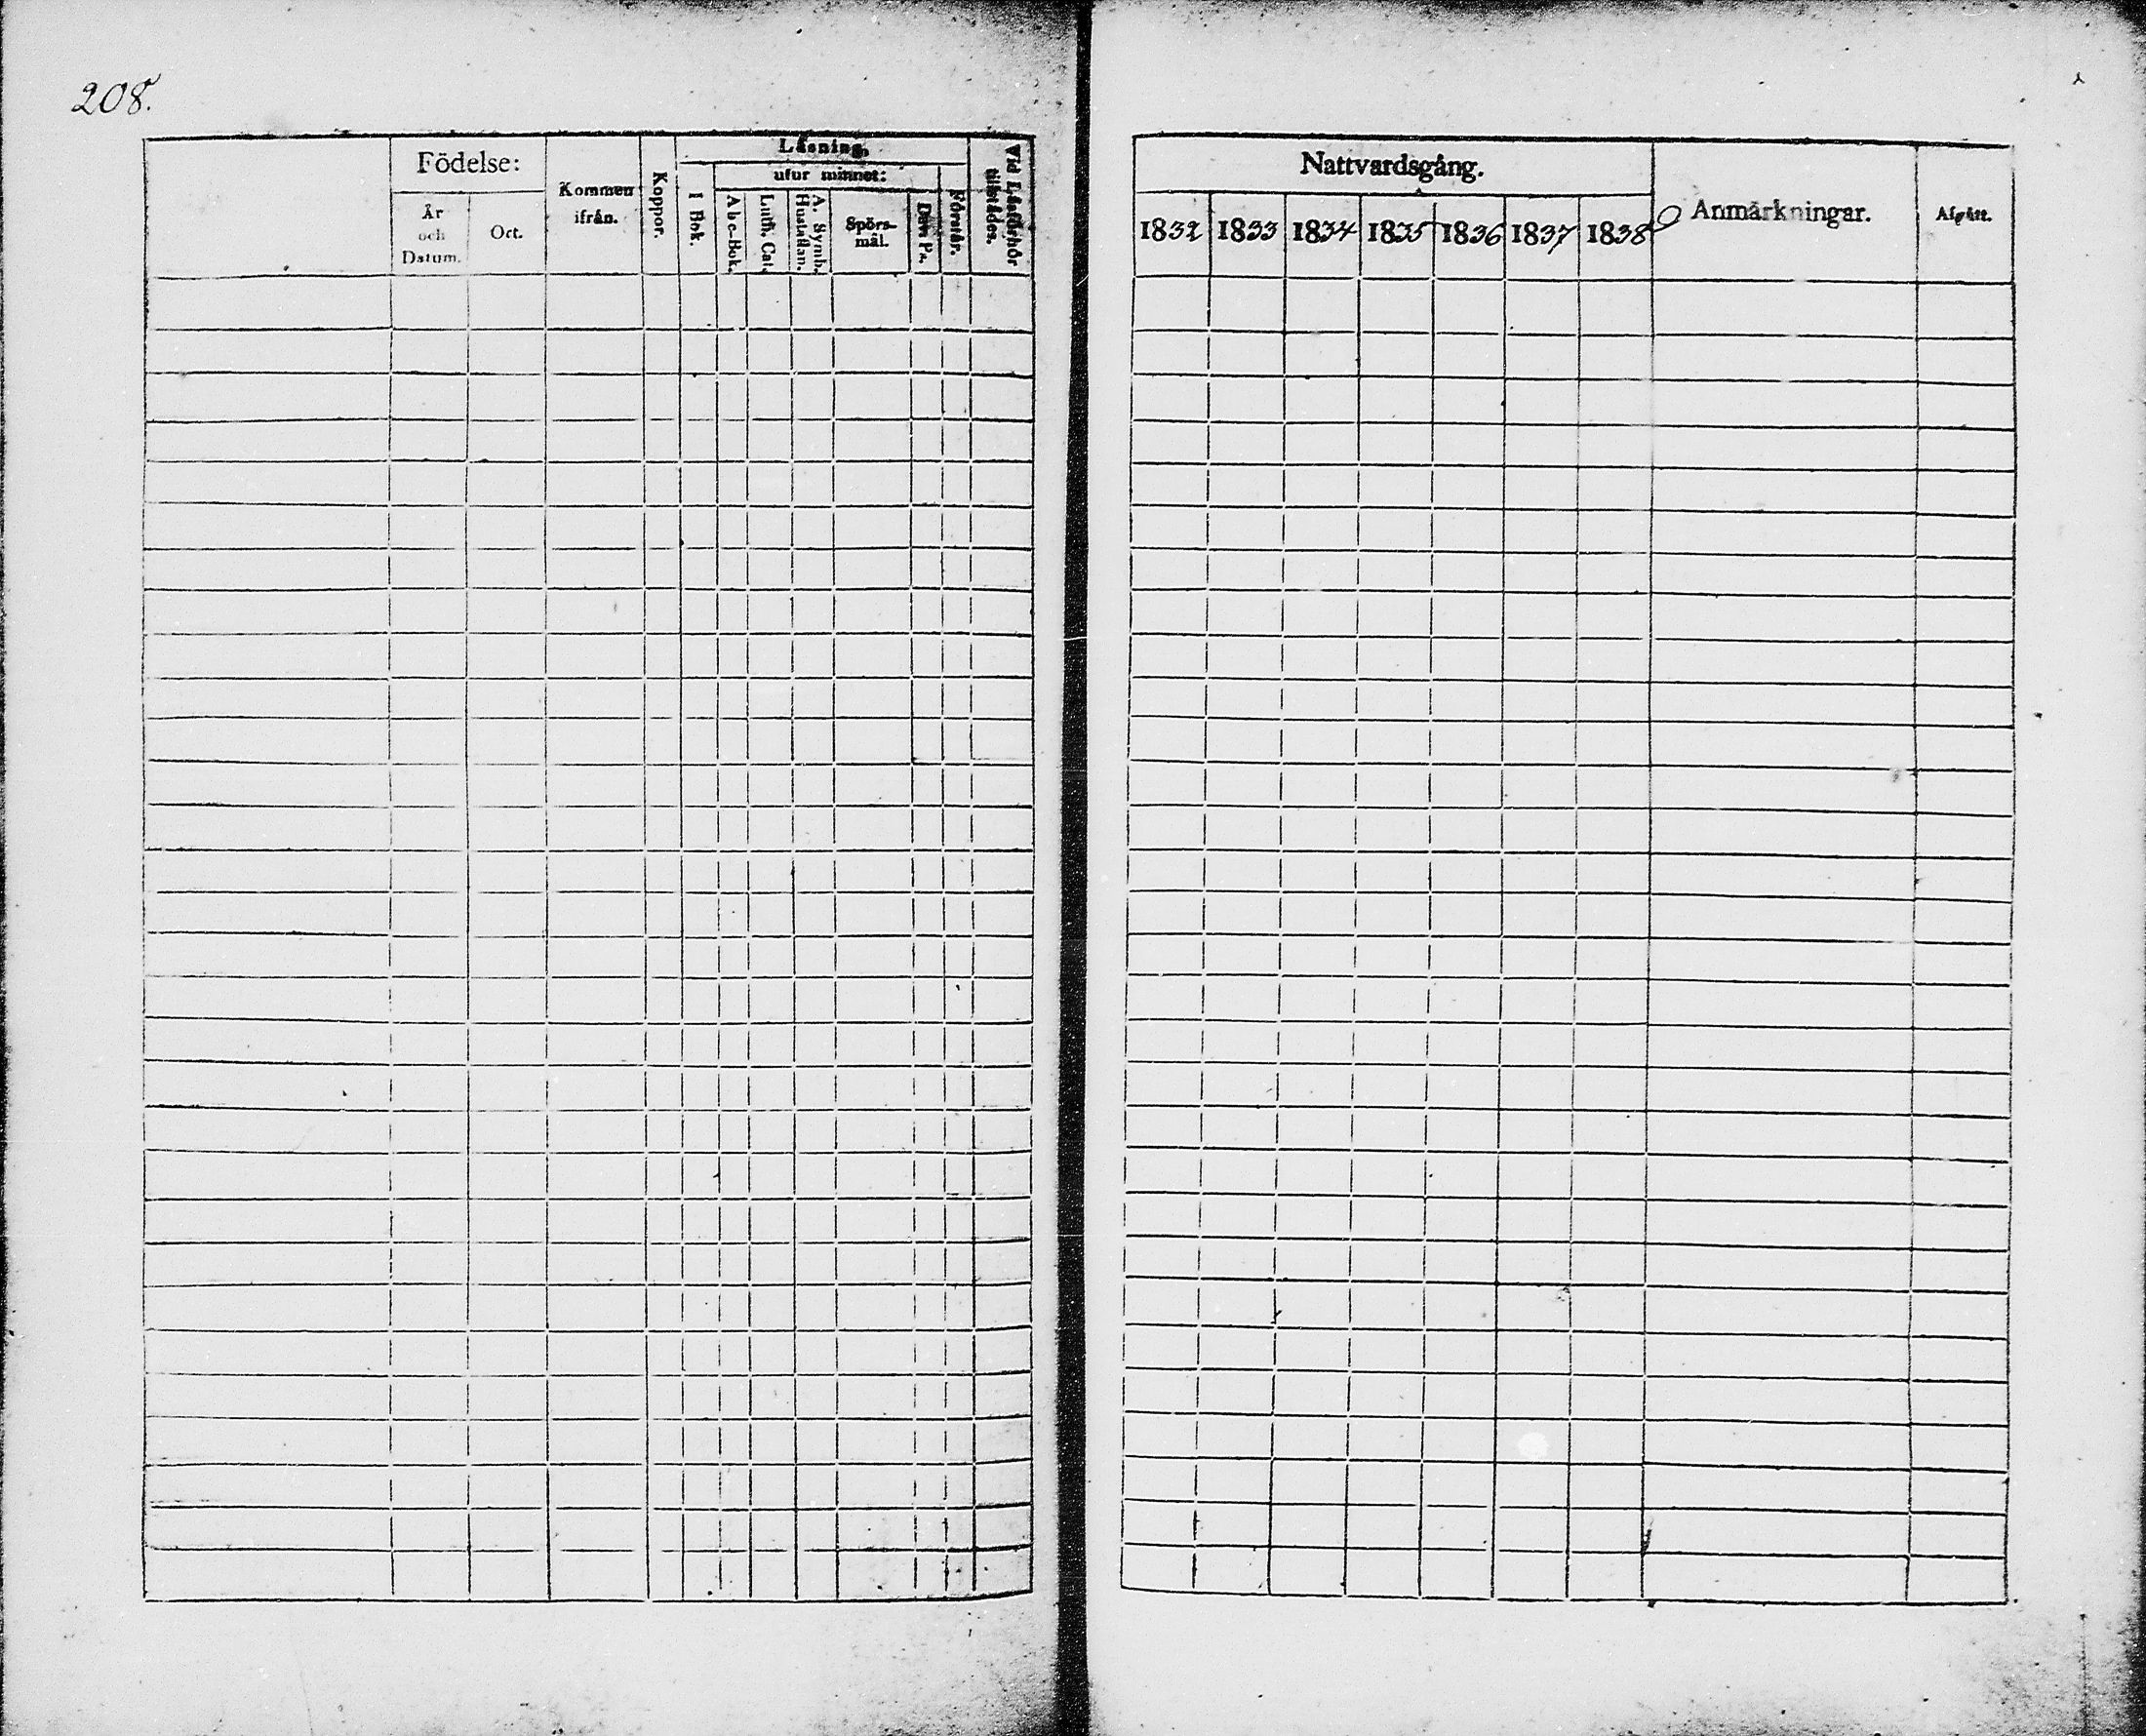 208.
Födelse:
År
och
Datum.
Oct.
Kommen
ifrån.
Koppor.
Läsning.
I Bok.
utur minnet:
Abc-Bok.
Luth. Cat.
A. Symb.
Hustaflan.
Spörs-
mål.
Dav. Ps.
Förstår.
Vid Läsförhör
tillstädes.
Nattvardsgång.
1832 1833 1834 1835 1836 1837 1838
Anmärkningar.
Afgått.